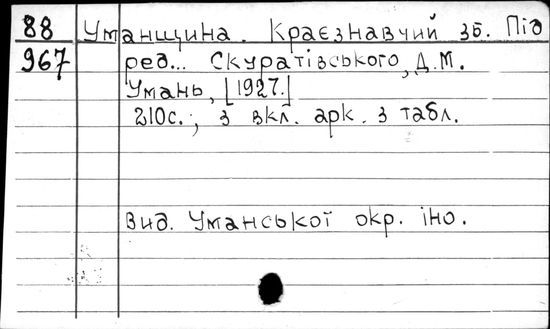 88 Уманщина. Краєзнавчий зб. Під
967 ред... Скуратівського, Д.М.
Умань, [1927.]
210с.; з вкл. арк. з табл.
Вид. Уманської окр. іно.